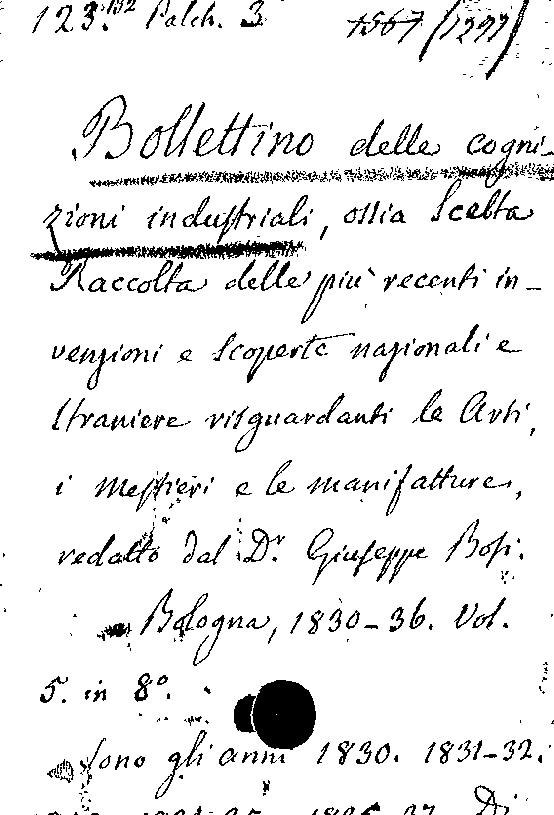 123.152 Palch. 3 1567/1297
Bollettino delle cogni-
zioni industriali, ossia Scelta
Raccolta delle più recenti in-
venzioni e scoperte nazionali e
straniere risguardanti le Arti,
i mestieri e le manifatture,
redatto dal Dr. Giuseppe Bosi.
Bologna, 1830-36. Vol.
5. in 8º.
sono gli anni 1830. 1831-32.
Di